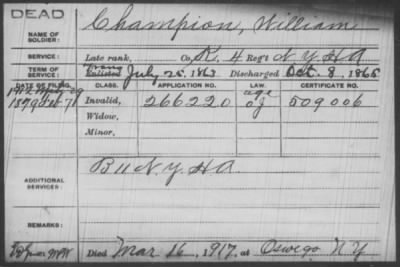 DEAD
NAME OF SOLDIER: Champion, William
SERVICE: Late rank, Co. K. 4 Reg't N Y H A
TERM OF SERVICE: Trans Enlisted July 25, 1863 Discharged Oct. 8, 1865
DATE OF FILING. CLASS. APPLICATION NO. LAW. CERTIFICATE NO.
1912 age
1879 Invalid, 266220 of 509006
Widow,
Minor,
ADDITIONAL SERVICES: B 11 N.Y. H A
REMARKS:
Died Mar 16, 1917, at Oswego N Y